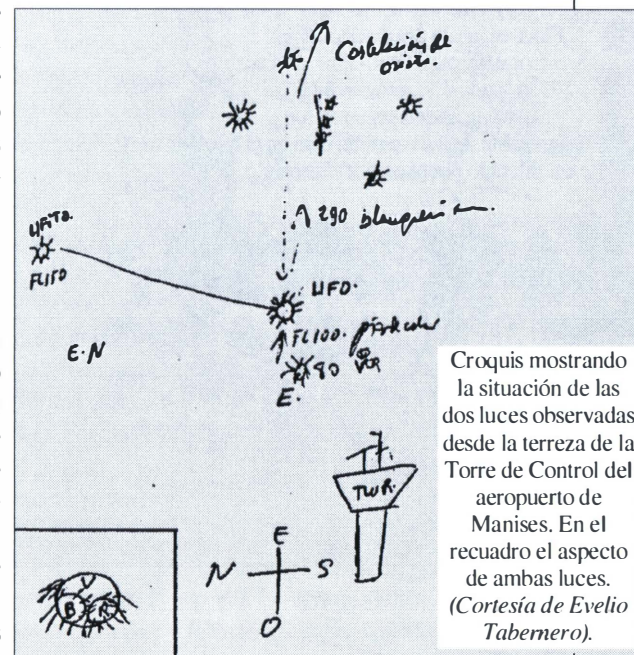 Costelación de
UFO
FL150
290
UFO.
E.N
FL100.
80
E.
TWR.
E
N S
O
V
B R
Croquis mostrando
la situación de las
dos luces observadas
desde la terreza de la
Torre de Control del
aeropuerto de
Manises. En el
recuadro el aspecto
de ambas luces.
(Cortesía de Evelio
Tabernero).